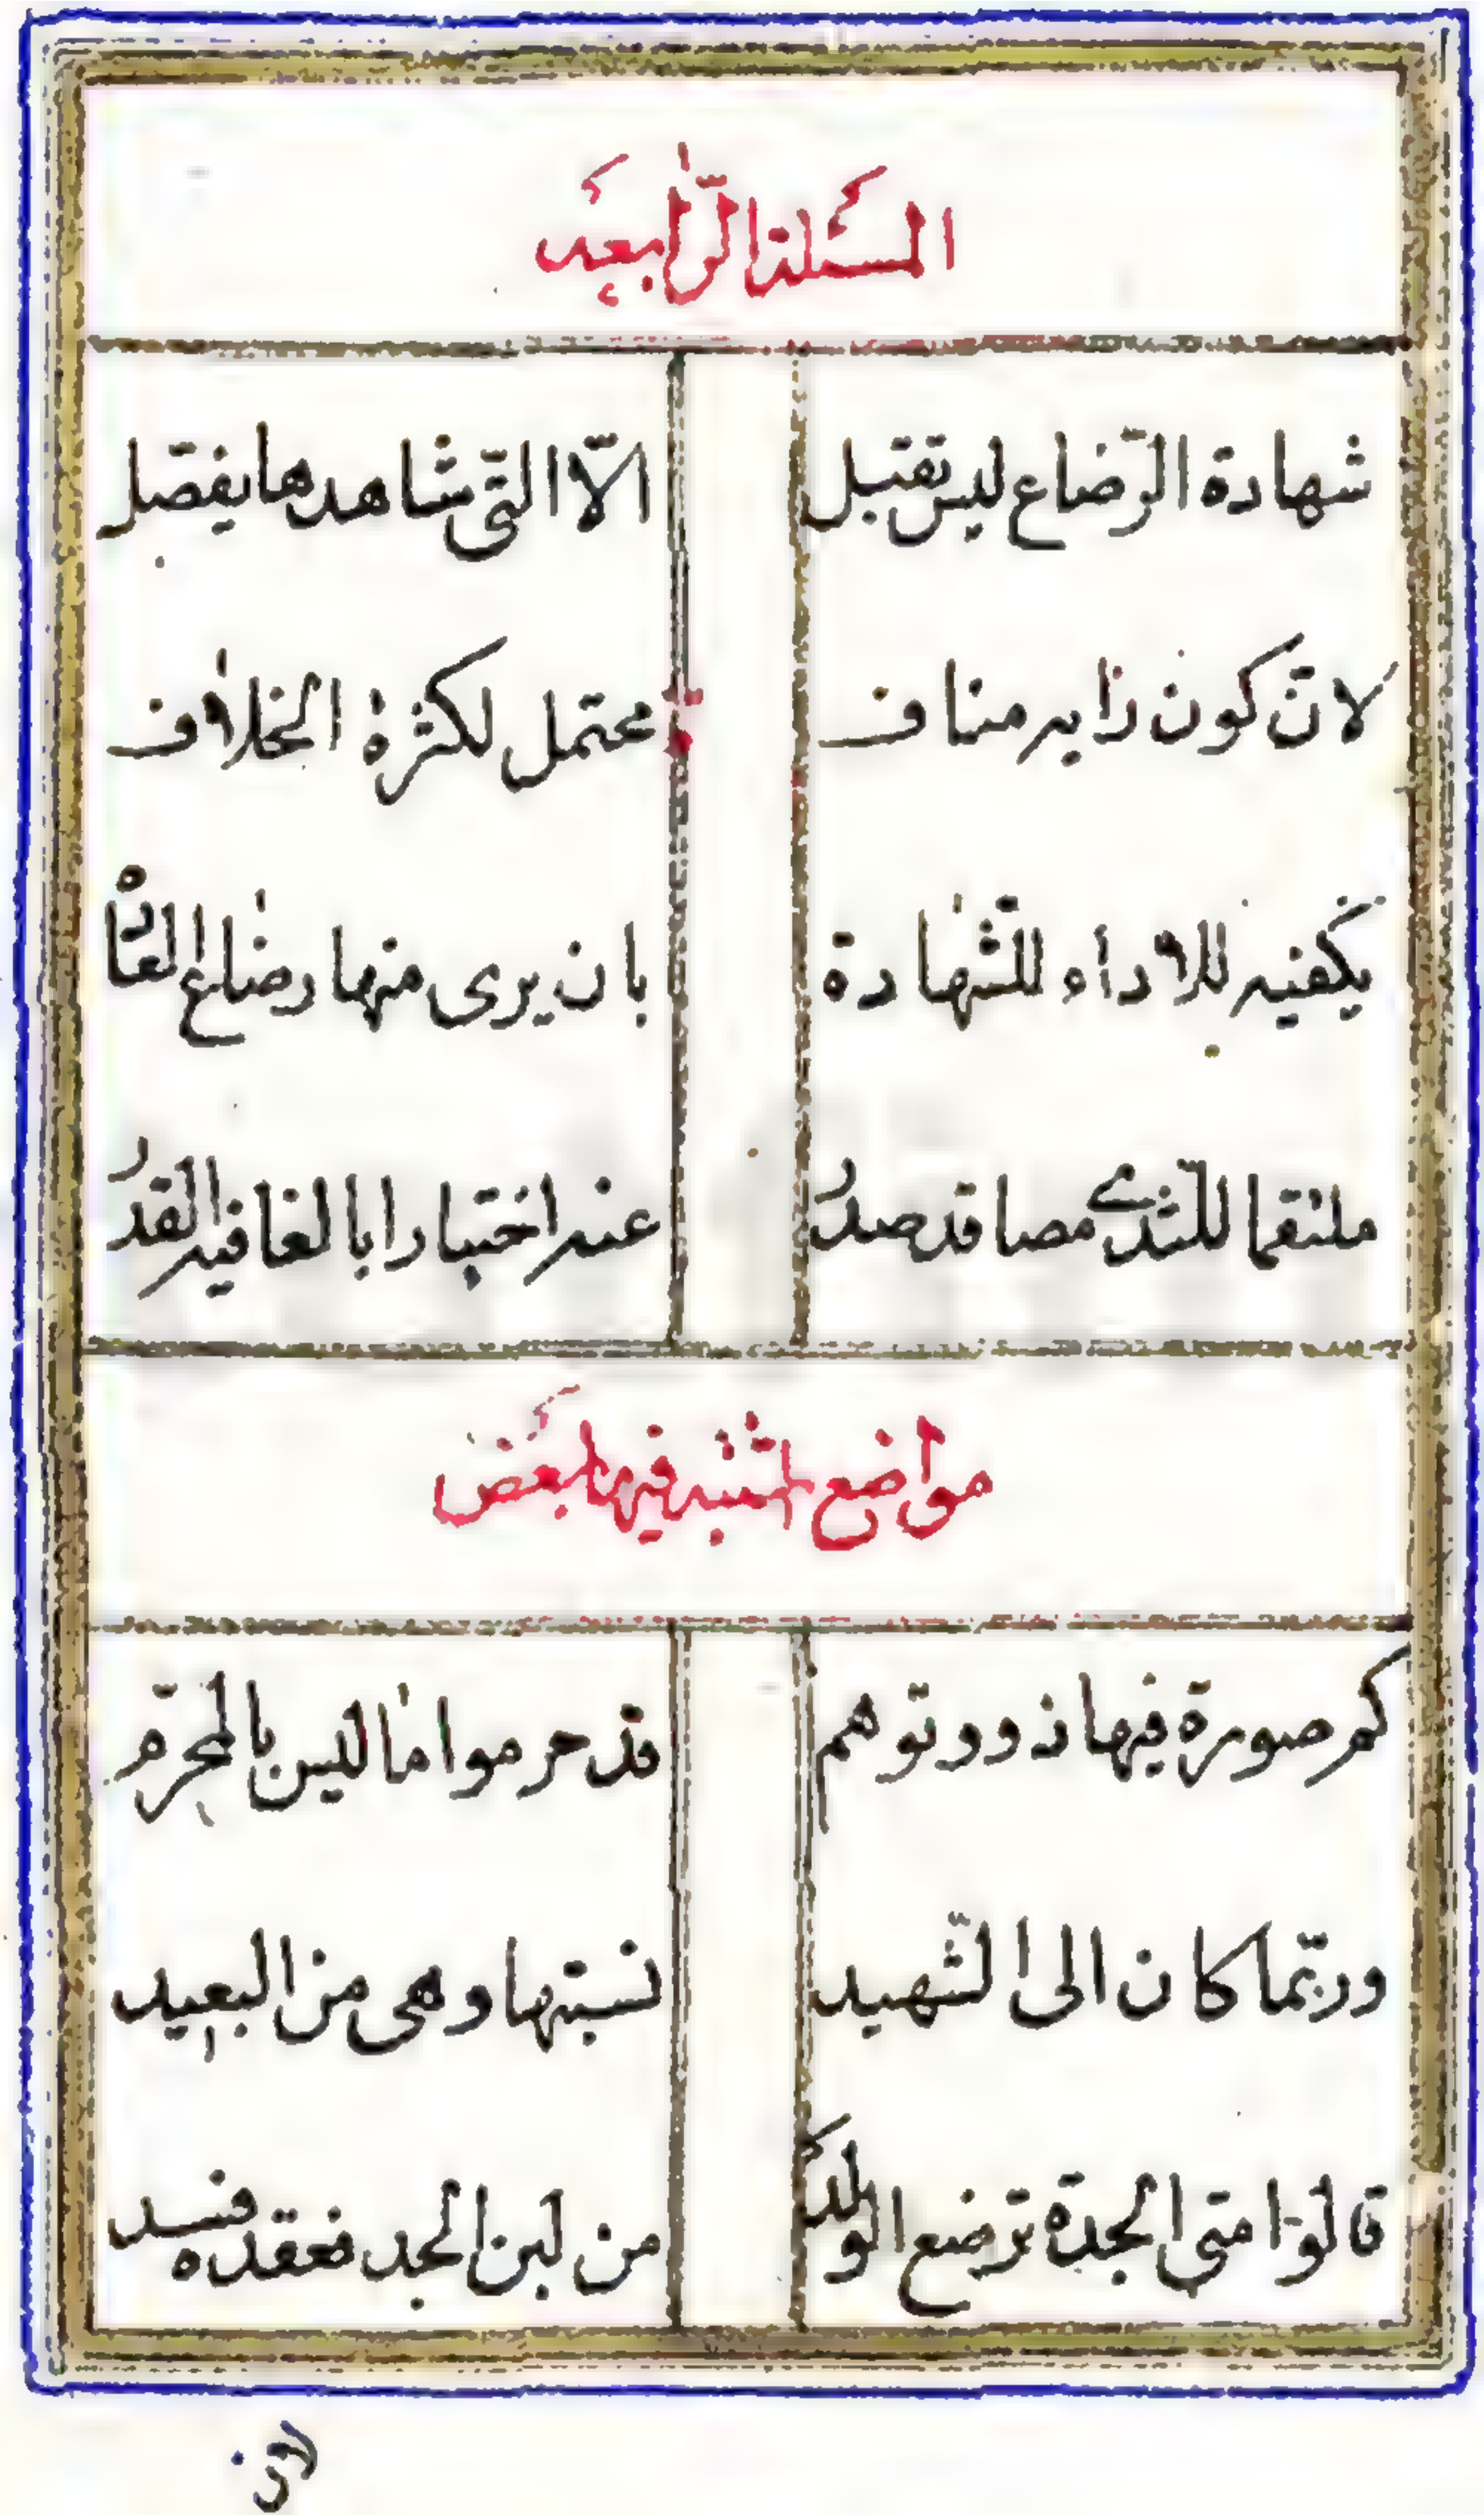 المسئلة الرّابعه
شهادة الرّضاع ليس تقبل الّا الّتى شاهدها يفصّل
لانّ كون ذا به مناف محتمل لكثرة الخلاف
يكفيه للاداء للشّهادة بان يرى منها رضاع العادة
ملتقما للثّدى مصا قد صدر عنه اختبارا بالغا فيه القدر
مواضع اشتبه فيها بعض
كم صورة فيها ذوو توهم قد حرموا ما ليس بالمحرّم
وربّما كان الى الشّهيد نسبتها وهى من البعيد
قالوا متى الجدة ترضع الولد من لبن الجد فعقده فسد
لان